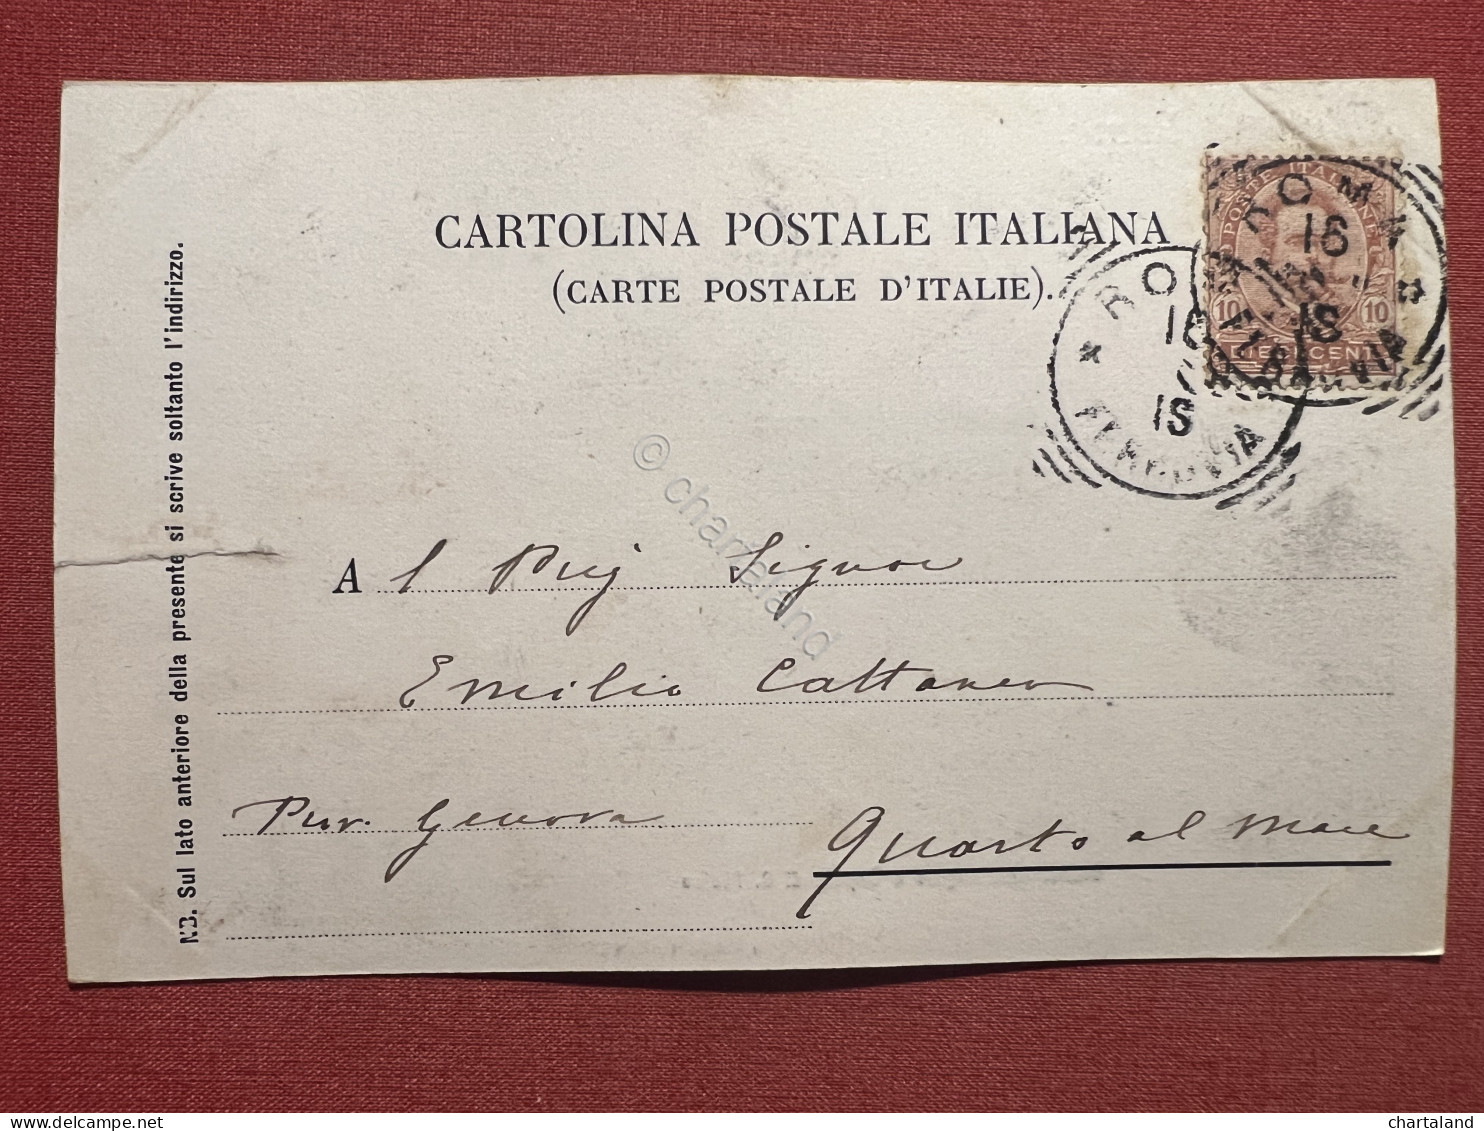 CARTOLINA POSTALE ITALIANA
(CARTE POSTALE D'ITALIE).
POSTE ITALIANE
10 10
DIECI CENT
ROMA
16
18
FERROVIA
* ROMA
16
18
FERROVIA
NB. Sul lato anteriore della presente si scrive soltanto l'indirizzo.
A l Signor
Emilio Cattaneo
Genova
Quarto al Mare
© chartaland
delcampe.net
chartaland